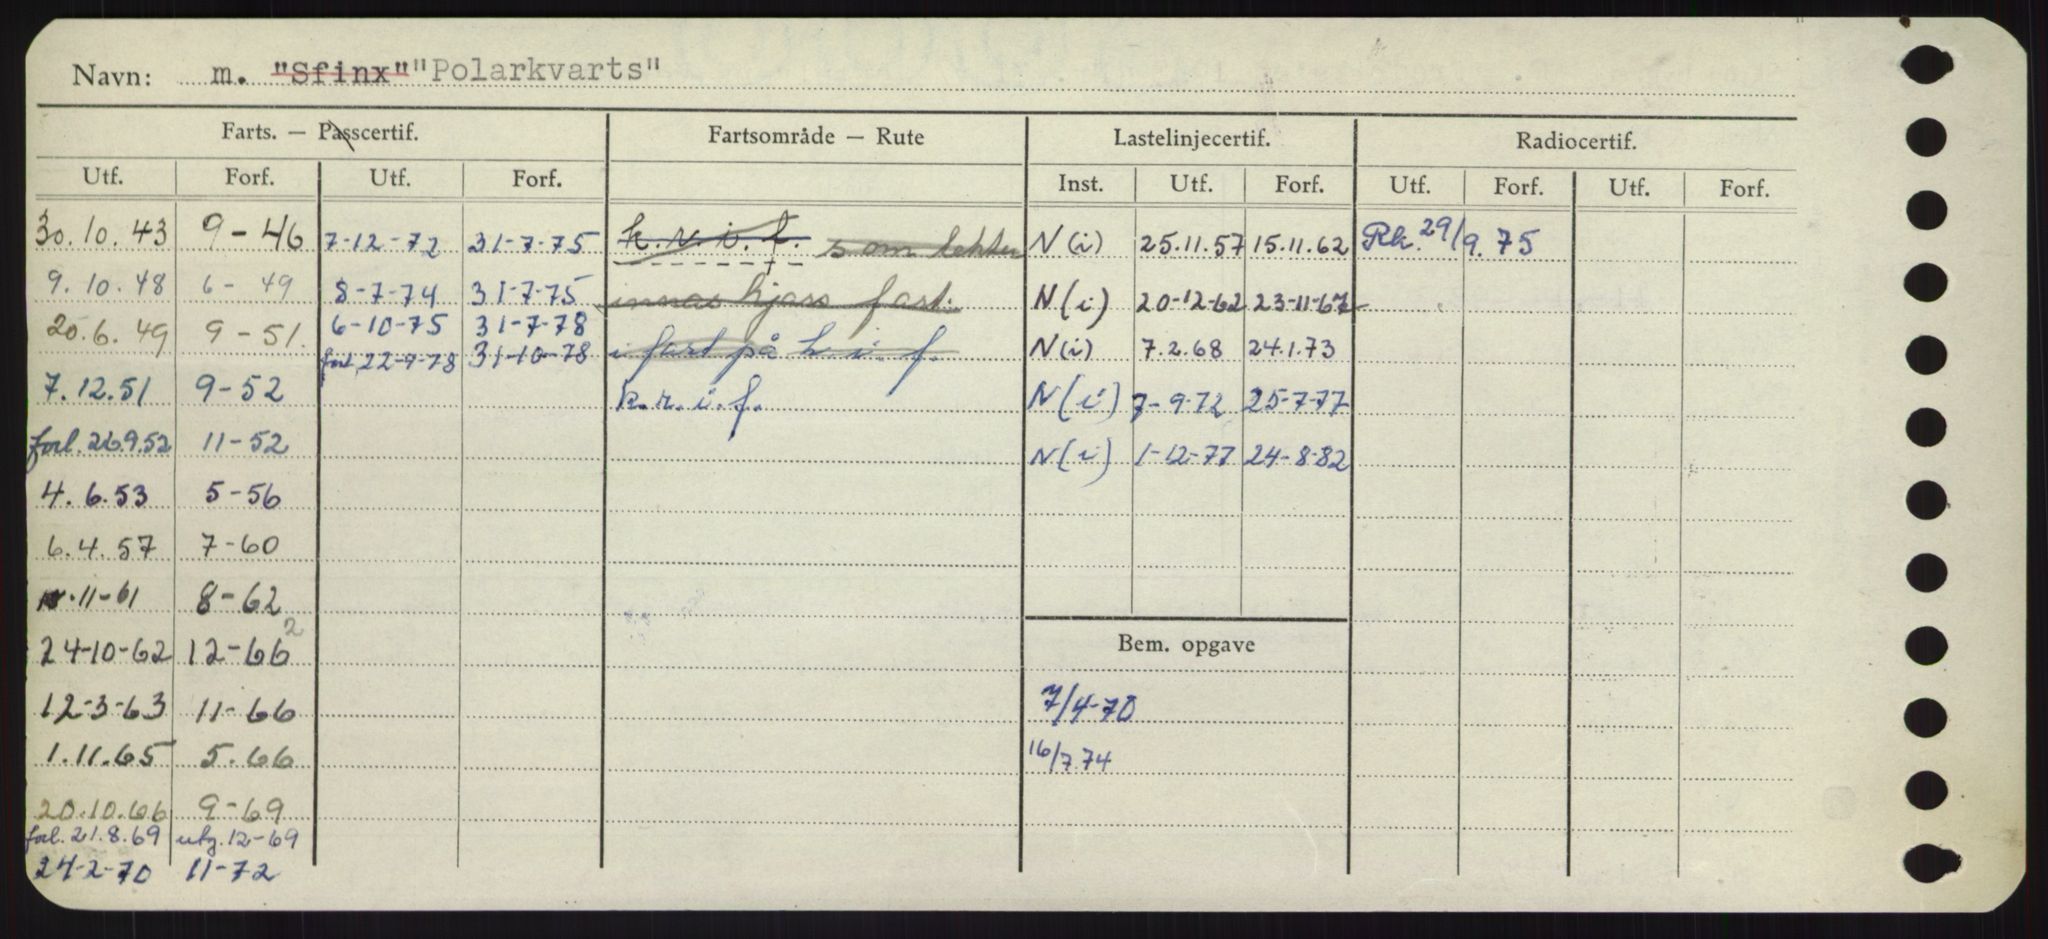 Navn: m. "Sfinx" "Polarkvarts"
Farts. — Passcertif. Fartsområde — Rute Lastelinjecertif. Radiocertif.
Utf. Forf. Utf. Forf. Inst. Utf. Forf. Utf. Forf. Utf. Forf.
30.10.43 9-46 7-12-72 31-7-75 k.r.i.f. som lekter N(i) 25.11.57 15.11.62 Rk. 29/9.75
9.10.48 6-49 8-7-74 31-7-75 fart. N(i) 20-12-62 23-11-67
20.6.49 9-51. 6-10-75 31-7-78
forl. 22-9-78 31-10-78 i fart på k.i.f. N(i) 7.2.68 24.1.73
7.12.51 9-52 k.r.i.f. N(i) 7-9-72 25-7-77
forl. 26.9.52 11-52 N(i) 1-12-77 24-8-82
4.6.53 5-56
6.4.57 7-60
11-61 8-62
24-10-62 12-66 2 Bem. opgave
12-3-63 11-66 7/4-70
1.11.65 5.66 16/7.74
20.10.66 9-69
forl. 21.8.69 utg. 12-69
24-2-70 11-72